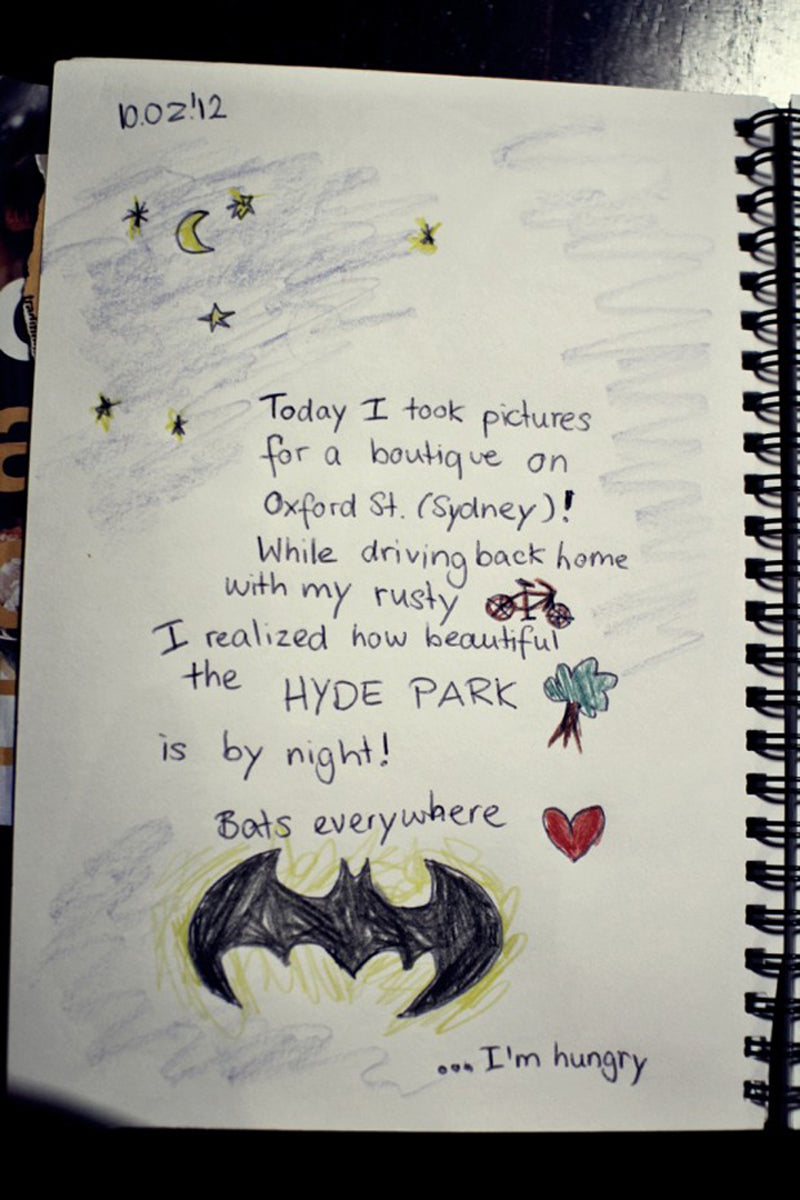 10.02.'12
Today I took pictures
for a boutique on
Oxford St. (Sydney)!
While driving back home
with my rusty
I realized how beautiful
the HYDE PARK
is by night!
Bats everywhere
...I'm hungry